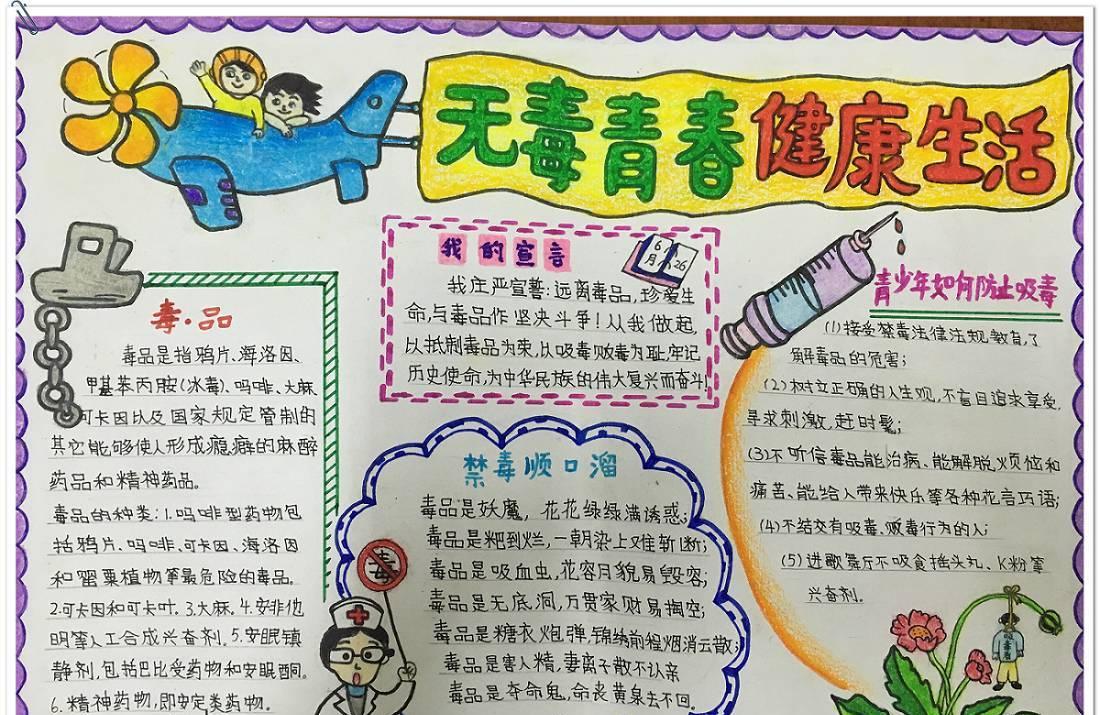 无毒青春健康生活
我的宣言
6月 26
我庄严宣誓:远离毒品,珍爱生
命,与毒品作坚决斗争!从我做起,
以抵制毒品为荣,以吸毒贩毒为耻,牢记
历史使命,为中华民族的伟大复兴而奋斗!
毒·品
毒品是指鸦片、海洛因、
甲基苯丙胺(冰毒)、吗啡、大麻、
可卡因以及国家规定管制的
其它能够使人形成瘾癖的麻醉
药品和精神药品。
毒品的种类:1.吗啡型药物包
括鸦片、吗啡、可卡因、海洛因
和罂粟植物等最危险的毒品。
2.可卡因和可卡叶.3.大麻.4.安非他
明等人工合成兴奋剂.5.安眠镇
静剂,包括巴比妥药物和安眠酮.
6.精神药物,即安定类药物。
禁毒顺口溜
毒品是妖魔,花花绿绿满诱惑;
毒品是粑到烂,一朝染上难斩断;
毒品是吸血虫,花容月貌易毁容;
毒品是无底洞,万贯家财易掏空;
毒品是糖衣炮弹,锦绣前程烟消云散;
毒品是害人精,妻离子散不认亲
毒品是夺命鬼,命丧黄泉去不回。
毒
青少年如何防止吸毒
(1)接受禁毒法律法规教育,了
解毒品的危害;
(2)树立正确的人生观,不盲目追求享受,
寻求刺激,赶时髦;
(3)不听信毒品能治病、能解脱烦恼和
痛苦、能给人带来快乐等各种花言巧语;
(4)不结交有吸毒、贩毒行为的人;
(5)进歌舞厅不吸食摇头丸、K粉等
兴奋剂.
吸毒者